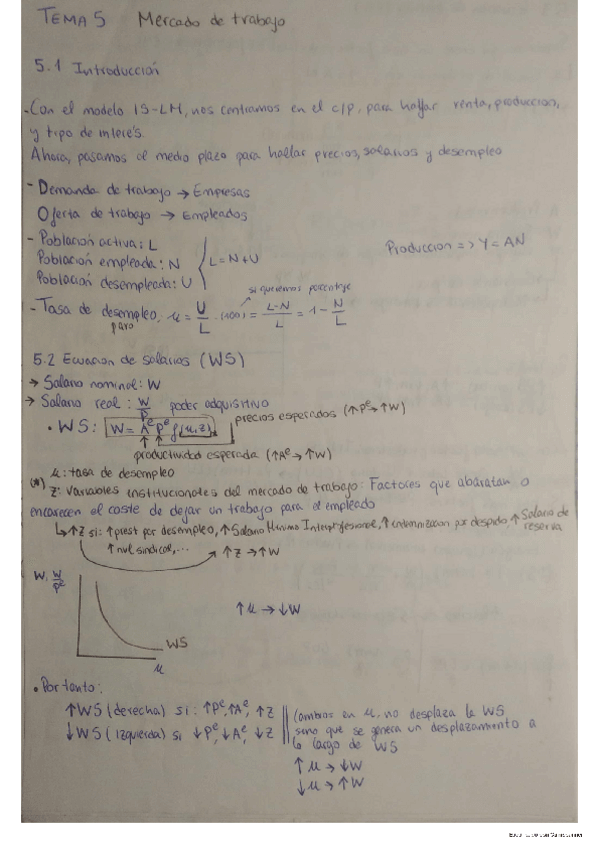 TEMA 5 Mercado de trabajo
5.1 Introducción
- Con el modelo IS-LM, nos centramos en el c/p, para hallar renta, producción,
y tipo de interés.
Ahora, pasamos al medio plazo para hallar precios, salarios y desempleo
- Demanda de trabajo → Empresas
Oferta de trabajo → Empleados
- Población activa: L
Población empleada: N
Población desempleada: U
L = N + U
Produccion => Y = AN
si queremos porcentaje
- Tasa de desempleo: u = U/L · (100) = L-N/L = 1 - N/L
paro
5.2 Ecuacion de salarios (WS)
→ Salario nominal: W
→ Salario real: W/P poder adquisitivo
• WS: W = A^e P^e f(u, z)
precios esperados (↑P^e → ↑W)
productividad esperada (↑A^e → ↑W)
u: tasa de desempleo
(*) z: Variables institucionales del mercado de trabajo: Factores que abaratan o
encarecen el coste de dejar un trabajo para el empleado
↳ ↑z si: ↑ prest por desempleo, ↑ Salario Mínimo Interprofesional, ↑ indemnizacion por despido, ↑ Salario de
reserva
↑ nvl sindical,...
↑ z → ↑W
W, W/P^e
↑ u → ↓W
WS
u
• Por tanto:
↑WS (derecha) si: ↑P^e, ↑A^e, ↑z
↓WS (izquierda) si ↓P^e, ↓A^e, ↓z
Cambios en u, no desplaza la WS
sino que se genera un desplazamiento a
lo largo de WS
↑ u → ↓W
↓ u → ↑W